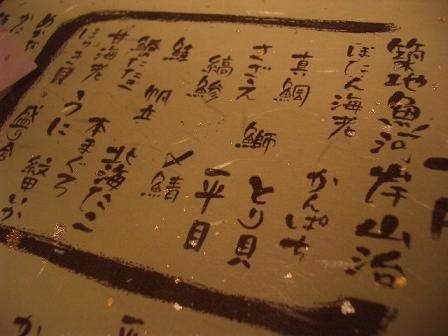 築地魚河岸山治
ぼたん海老
真鯛 かんぱち
さざえ 鰤 とり貝
縞鯵 平目
鮭 〆鯖
帆立 北海だこ
甘海老 本まぐろ
ほっき貝 うに 紋甲いか
めかぶ 盛り合